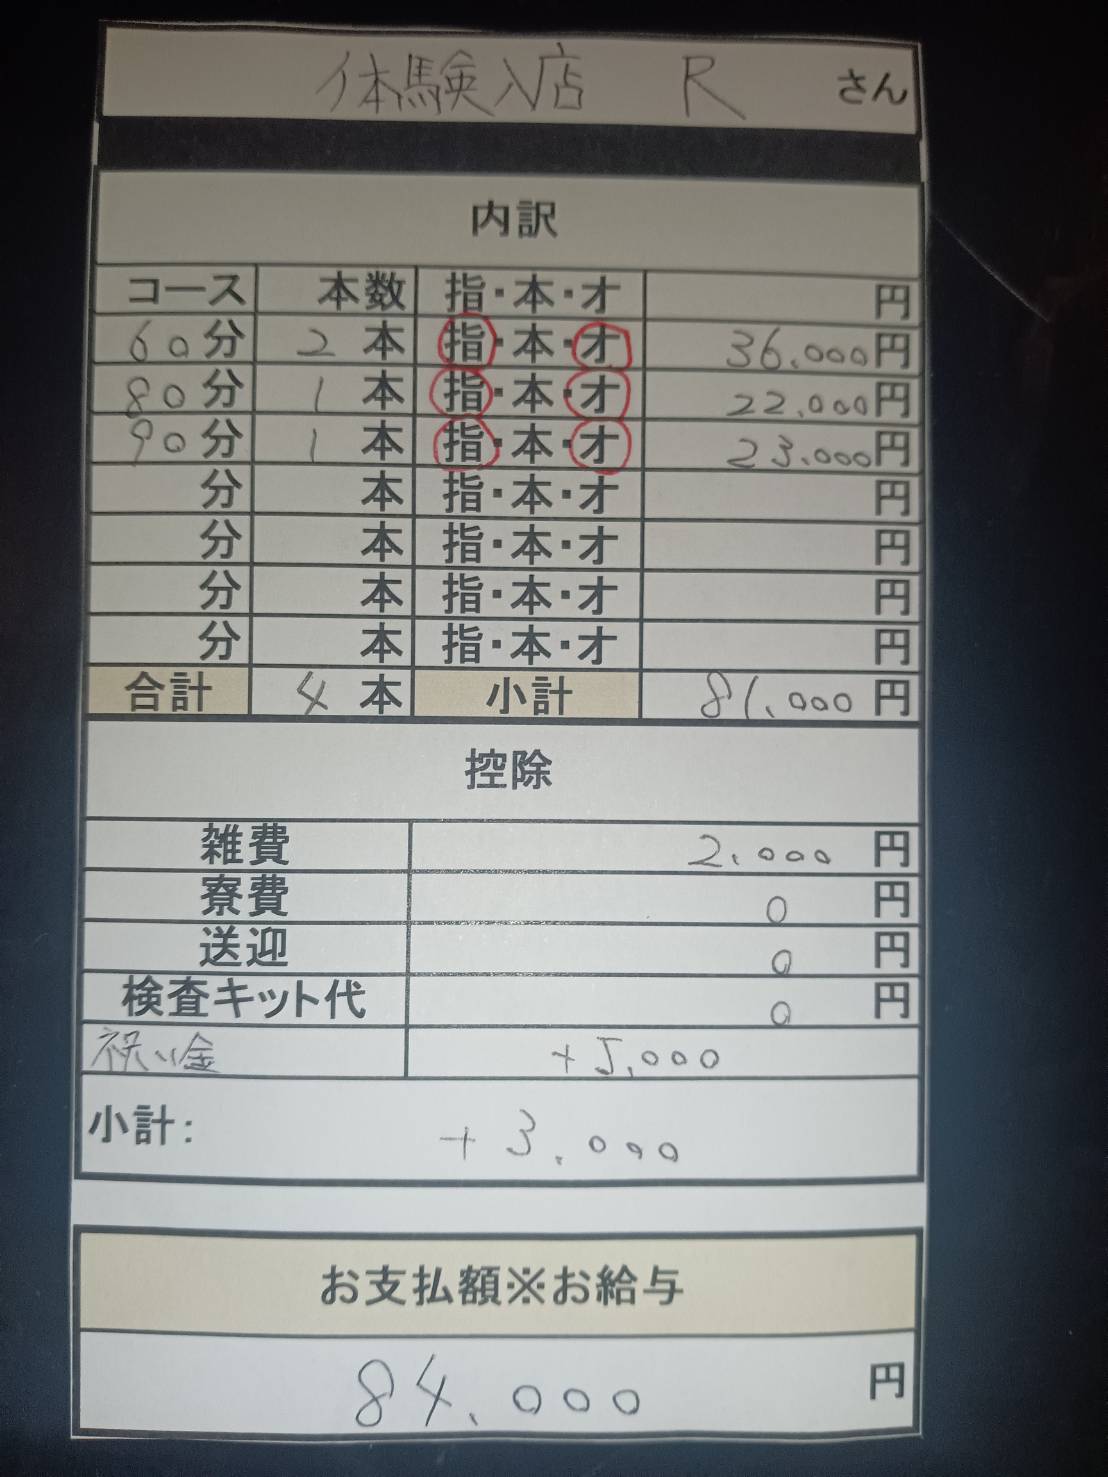 体験入店 R さん
内訳
コース 本数 指・本・オ 円
60分 2本 指・本・オ 36.000円
80分 1本 指・本・オ 22.000円
90分 1本 指・本・オ 23.000円
分 本 指・本・オ 円
分 本 指・本・オ 円
分 本 指・本・オ 円
分 本 指・本・オ 円
合計 4本 小計 81.000円
控除
雑費 2.000円
寮費 0円
送迎 0円
検査キット代 0円
祝い金 +5.000
小計: +3.000
お支払額※お給与
84.000円